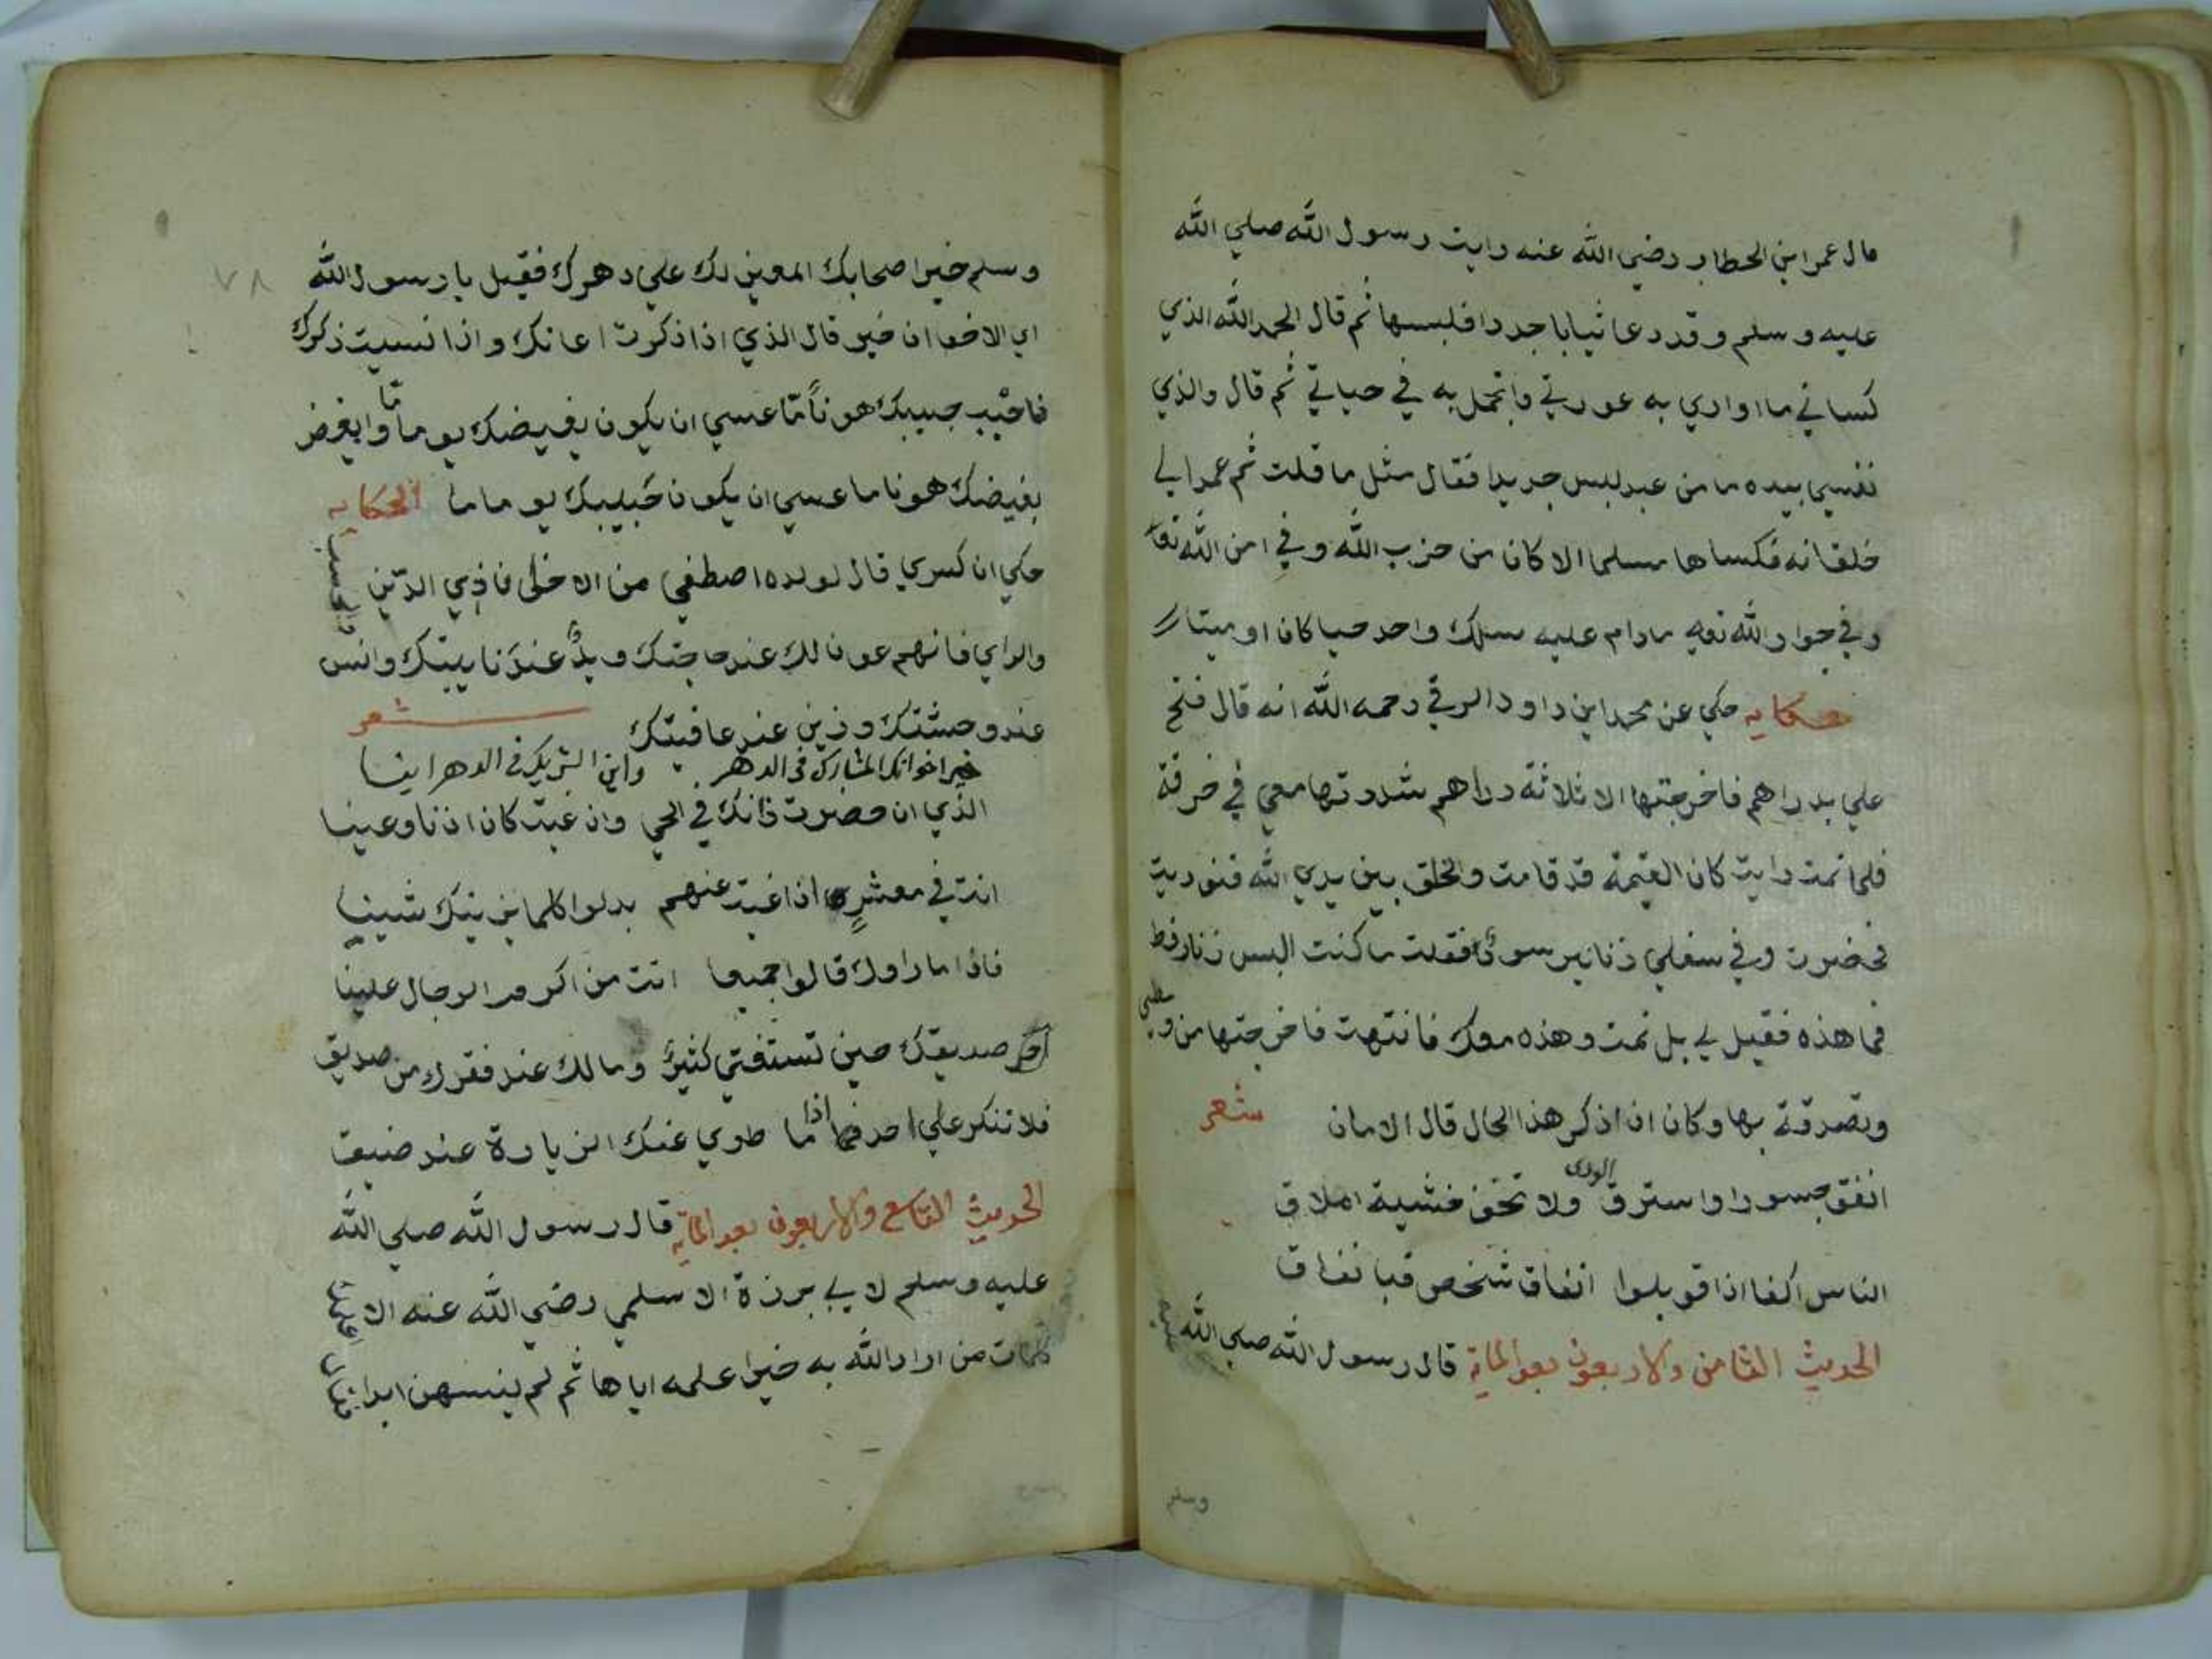 قال عمر ابن الخطاب رضي الله عنه رايت رسول الله صلي الله
عليه وسلم وقد دعا ثيابا جددا فلبسها ثم قال الحمد لله الذي
كساني ما اواري به عورتي واتجمل به في حياتي ثم قال والذي
نفسي بيده ما من عبد لبس جديدا فقال مثل ما قلت ثم عمد الي
خلقانه فكساها مسلما الا كان من حزب الله وفي امن الله تعا
وفي جوار الله تعه مادام عليه سلك واحد حيا كان او ميتا
حكايه حكي عن محمد ابن داود الرقي رحمه الله انه قال فتح
علي بدراهم فاخرجتها الا ثلاثة دراهم شددتها معي في خرقة
فلما نمت رايت كان القيمة قد قامت والخلق بين يدي الله فنوديت
فحضرت وفي سفلي زنانير سود فقلت ما كنت البس زنار قط
فما هذه فقيل لي بل نمت وهذه معك فانتهت فاخرجتها من وسطي
وتصدقة بها وكان اذ اذكر هذا الحال قال الامان شعر
انفق جسورا واسترق الورى ولا تخف خشية املاق
الناس اكفا اذا قوبلوا انفاق شخص قبا نفاق
الحديث الثامن والاربعون بعد الماية قال رسول الله صلي الله عليه
وسلم
٧٨
وسلم خير اصحابك المعين لك علي دهرك فقيل يا رسول الله
اي الاخوان خير قال الذي اذا ذكرت اعانك واذا نسيت ذكرك
فاحبب حبيبك هونا مّا عسي ان يكون بغيضك يوما مّا وابغض
بغيضك هونا ما عسي ان يكون حبيبك يوما ما الحكايه
حكي ان كسري قال لولده اصطفي من الاخلى فاذي الدّين والحسب
والراي فانهم عونا لك عند حاجتك ويدٌ عند نايبتك وانس
عند وحشتك وزين عند عافيتك شعر
خير اخوانك المشارك في الدهر واين الشريك في الدهر اينا
الذي ان حضرت زانك في الحي وان غبت كان اذنا وعينا
انت في معشرٍ اذا غبت عنهم بدلوا كلما يزينك شينا
فاذا ما راوك قالوا جميعا انت من اكرم الرجال علينا
آخر صديقك حين تستغني كثيرٌ ومالك عند فقرك من صديق
فلا تنكر علي احد اذا ما طوي عنك الزيارة عند ضيق
الحديث التاسع والاربعون بعد الماية قال رسول الله صلي الله
عليه وسلم لابي برزة الاسلمي رضي الله عنه الا اعلمك
كلمات من اراد الله به خيرا علمه اياها ثم لم ينسهن ابدا فقال